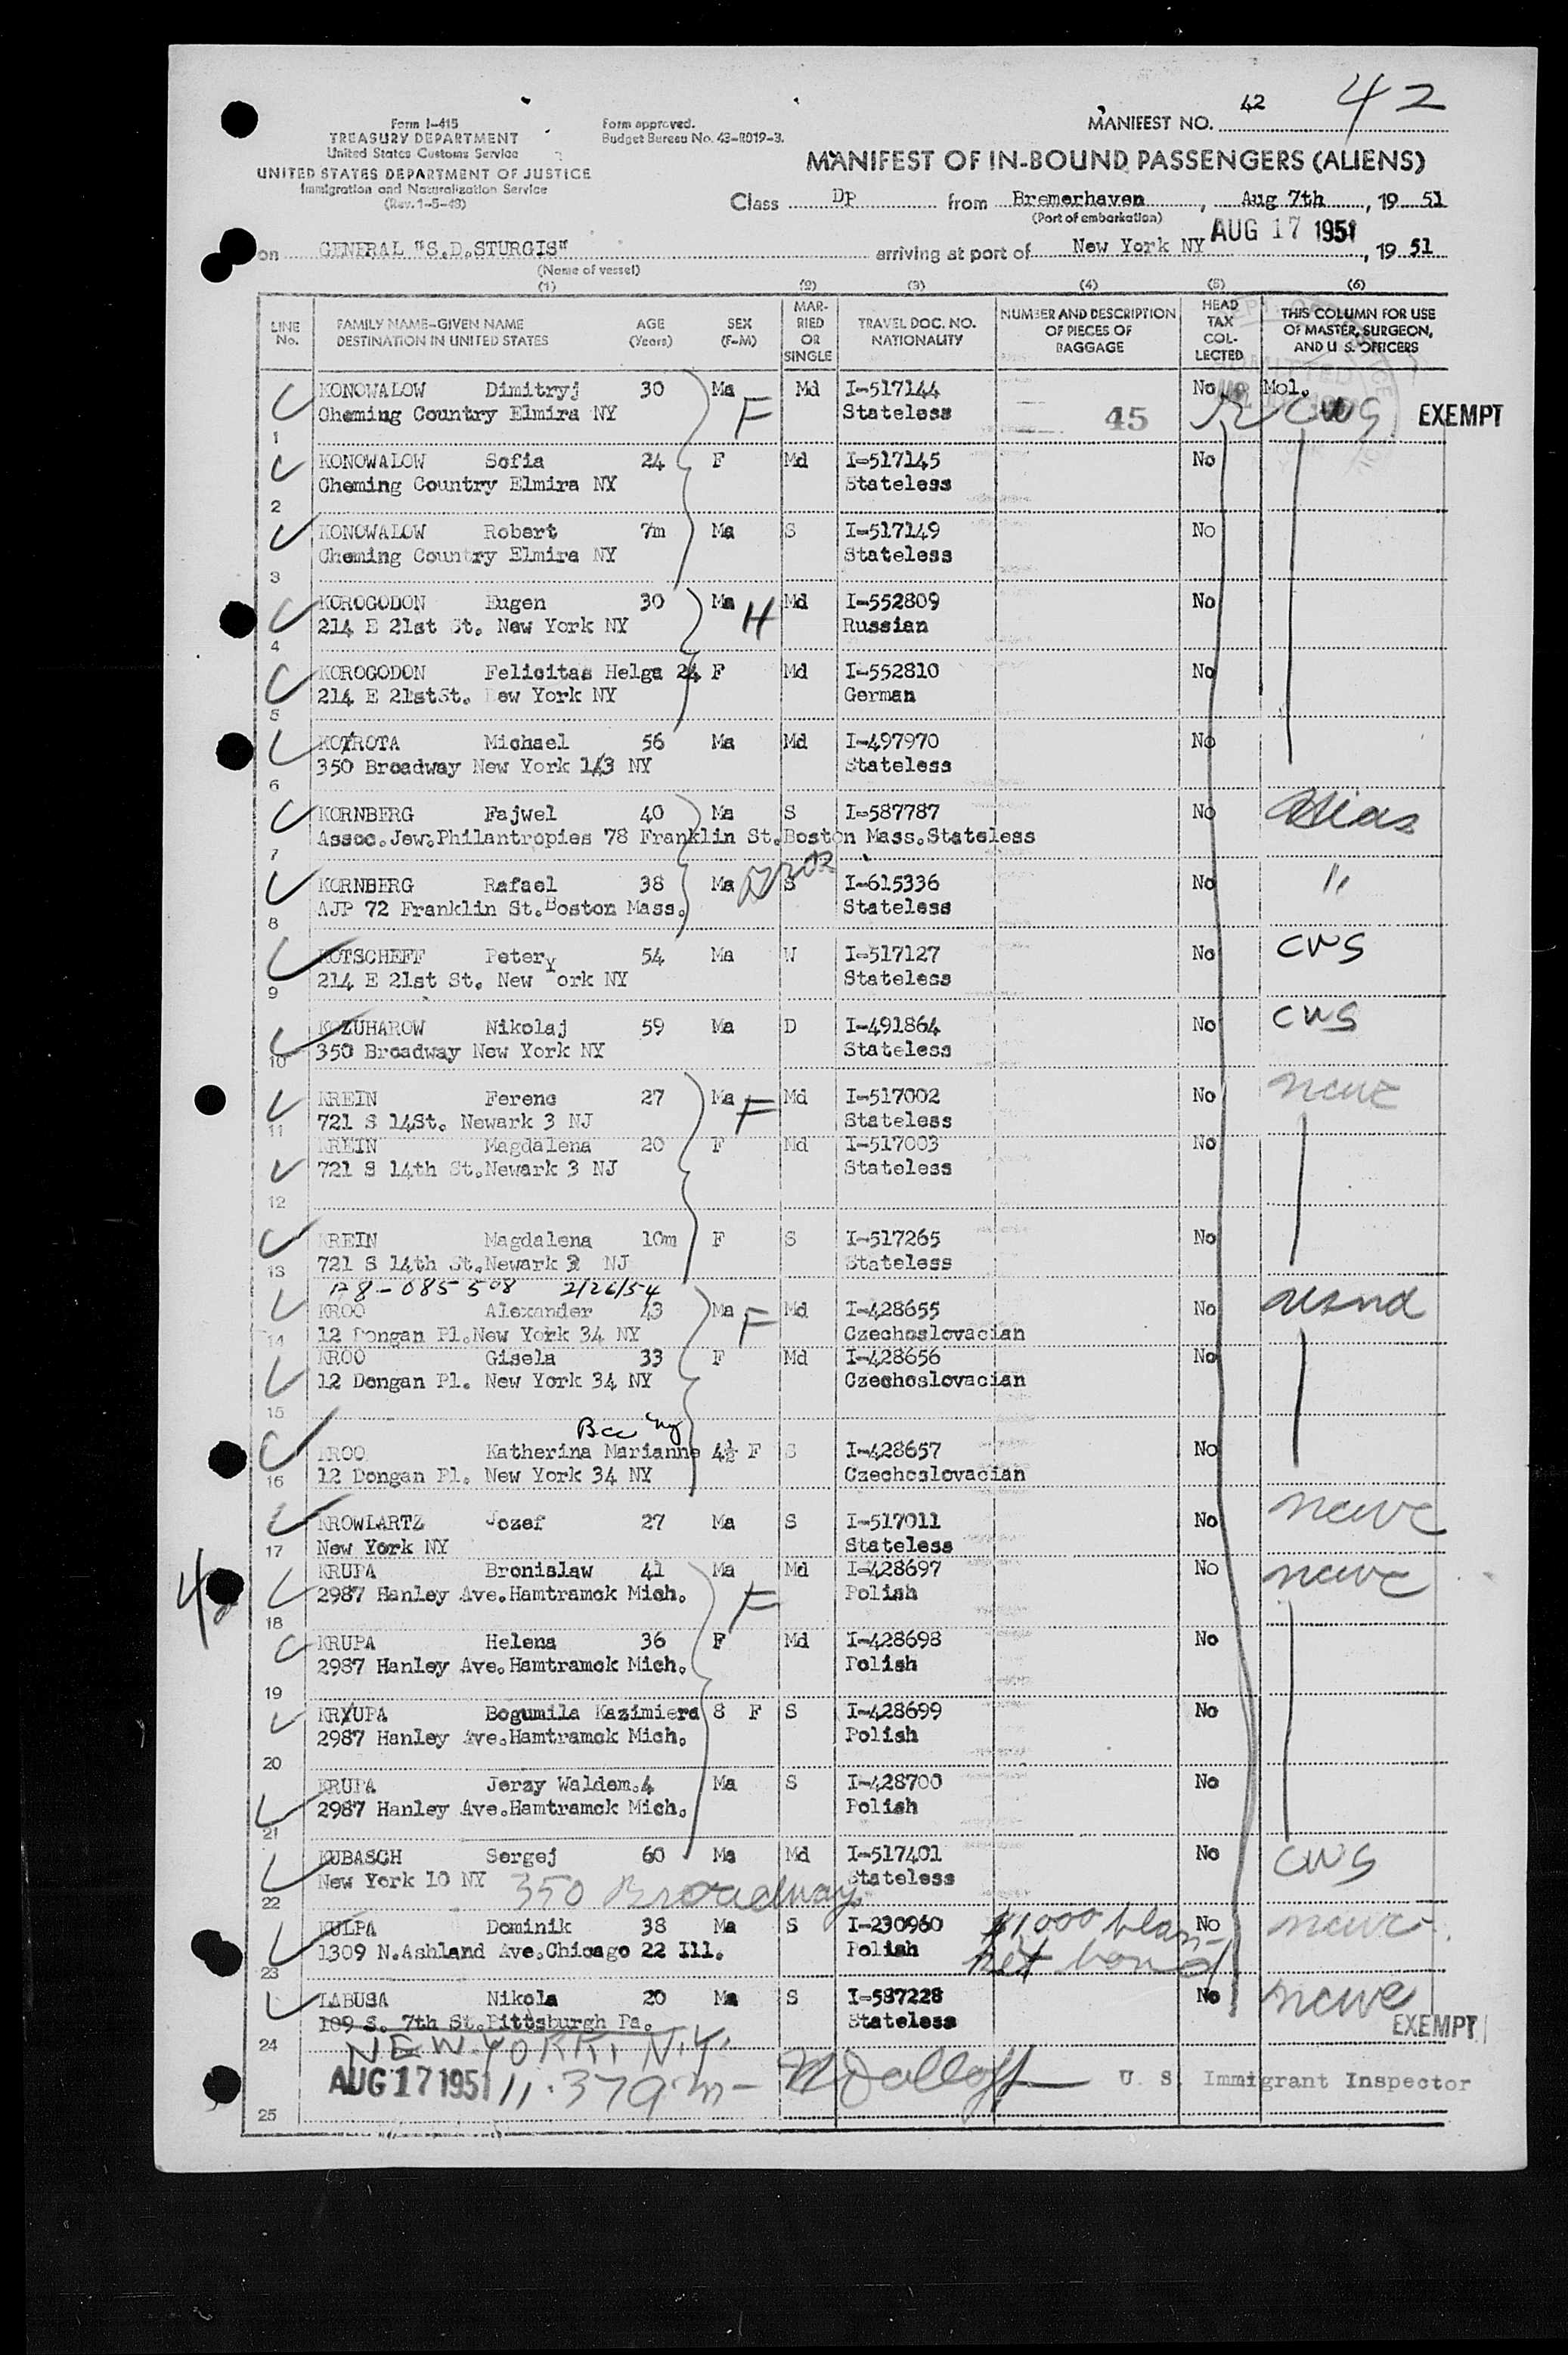 Form I-415
TREASURY DEPARTMENT
United States Customs Service
UNITED STATES DEPARTMENT OF JUSTICE
Immigration and Naturalization Service
(Rev. 1-5-49)
Form approved.
Budget Bureau No. 43-R019-3.
MANIFEST NO. 42 42
MANIFEST OF IN-BOUND PASSENGERS (ALIENS)
Class Dp from Bremerhaven, Aug 7th, 19 51
(Port of embarkation)
AUG 17 1951
on GENERAL "S.D.STURGIS" arriving at port of New York NY, 19 51
(Name of vessel)
(1) (2) (3) (4) (5) (6)
LINE No. FAMILY NAME-GIVEN NAME DESTINATION IN UNITED STATES AGE (Years) SEX (F-M) MARRIED OR SINGLE TRAVEL DOC. NO. NATIONALITY NUMBER AND DESCRIPTION OF PIECES OF BAGGAGE HEAD TAX COLLECTED THIS COLUMN FOR USE OF MASTER, SURGEON, AND U. S. OFFICERS
KONOWALOW Dimitryj 30 Ma F Md I-517144 No Mol.
Cheming Country Elmira NY Stateless 45 CWS EXEMPT
1
KONOWALOW Sofia 24 F Md I-517145 No
Cheming Country Elmira NY Stateless
2
KONOWALOW Robert 7m Ma S I-517149 No
Cheming Country Elmira NY Stateless
3
KOROGODON Eugen 30 Ma H Md I-552809 No
214 E 21st St. New York NY Russian
4
KOROGODON Felicitas Helga 24 F Md I-552810 No
214 E 21stSt. New York NY German
5
KOTROTA Michael 56 Ma Md I-497970 No
350 Broadway New York 1/3 NY Stateless
6
KORNBERG Fajwel 40 Ma S I-587787 No
Assoc.Jew.Philantropies 78 Franklin St.Boston Mass.Stateless
7
KORNBERG Rafael 38 Ma S I-615336 No "
AJP 72 Franklin St.Boston Mass. Stateless
8
KOTSCHEFF Peter 54 Ma W I-517127 No CWS
214 E 21st St. New York NY Stateless
9
KOZUHAROW Nikolaj 59 Ma D I-491864 No CWS
350 Broadway New York NY Stateless
10
KREIN Ferenc 27 Ma F Md I-517002 No ncwc
721 S 14St. Newark 3 NJ Stateless
11
KREIN Magdalena 20 F Md I-517003 No
721 S 14th St.Newark 3 NJ Stateless
12
KREIN Magdalena 10m F S I-517265 No
721 S 14th St.Newark 3 NJ Stateless
13
A8-085 508 2/26/54
KROO Alexander 43 Ma F Md I-428655 No usna
12 Dongan Pl.New York 34 NY Czechoslovacian
14
KROO Gisela 33 F Md I-428656 No
12 Dongan Pl. New York 34 NY Czechoslovacian
15
KROO Katherina Marianne 4½ F S I-428657 No
12 Dongan Pl. New York 34 NY Czechoslovacian
16
KROWIARTZ Jozef 27 Ma S I-517011 No ncwc
17 New York NY Stateless
KRUPA Bronislaw 41 Ma F Md I-428697 No ncwc
2987 Hanley Ave.Hamtramck Mich. Polish
18
KRUPA Helena 36 F Md I-428698 No
2987 Hanley Ave.Hamtramck Mich. Polish
19
KRYUPA Bogumila Kazimiera 8 F S I-428699 No
2987 Hanley Ave.Hamtramck Mich. Polish
20
KRUPA Jerzy Waldem.4 Ma S I-428700 No
2987 Hanley Ave.Hamtramck Mich. Polish
21
KUBASCH Sergej 60 Ma Md I-517401 No CWS
New York 10 NY 350 Broadway Stateless
22
KULPA Dominik 38 Ma S I-230960 $1,000 blan- No ncwc
1309 N.Ashland Ave.Chicago 22 Ill. Polish ket bond
23
LABUSA Nikola 20 Ma S I-587228 No ncwc
109 S. 7th St.Pittsburgh Pa. Stateless EXEMPT
24
NEW YORK, N.Y.
AUG 17 1951 U. S. Immigrant Inspector
25